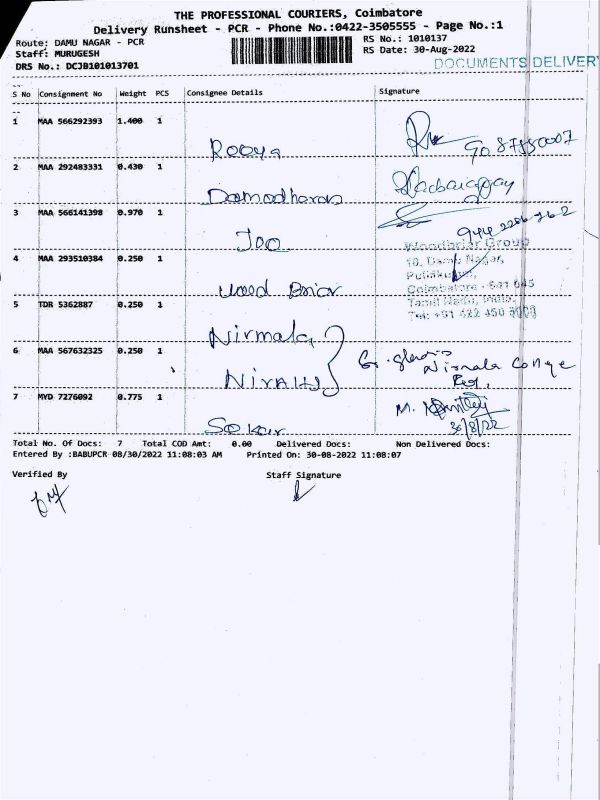 THE PROFESSIONAL COURIERS, Coimbatore
Delivery Runsheet - PCR - Phone No.:0422-3505555 - Page No.:1
Route: DAMU NAGAR - PCR
RS No.: 1010137
Staff: MURUGESH
RS Date: 30-Aug-2022
DRS No.: DCJB101013701
DOCUMENTS DELIVER
S No Consignment No Weight PCS Consignee Details Signature
1 MAA 566292393 1.400 1
Rooya
2 MAA 292483331 0.430 1
Damodharan
3 MAA 566141398 0.970 1
Joo
Woodbriar Group
4 MAA 293510384 0.250 1
10, Damu Nagar,
Puliakulam,
Coimbatore - 641 045
Wood Briar
Tamil Nadu, India.
5 TDR 5362887 0.250 1
Tel: +91 422 450
Nirmala
6 MAA 567632325 0.250 1
Nirmala College
7 MYD 7276092 0.775 1
M.
30/8/22
Total No. Of Docs: 7 Total COD Amt: 0.00 Delivered Docs: Non Delivered Docs:
Entered By :BABUPCR 08/30/2022 11:08:03 AM Printed On: 30-08-2022 11:08:07
Verified By Staff Signature